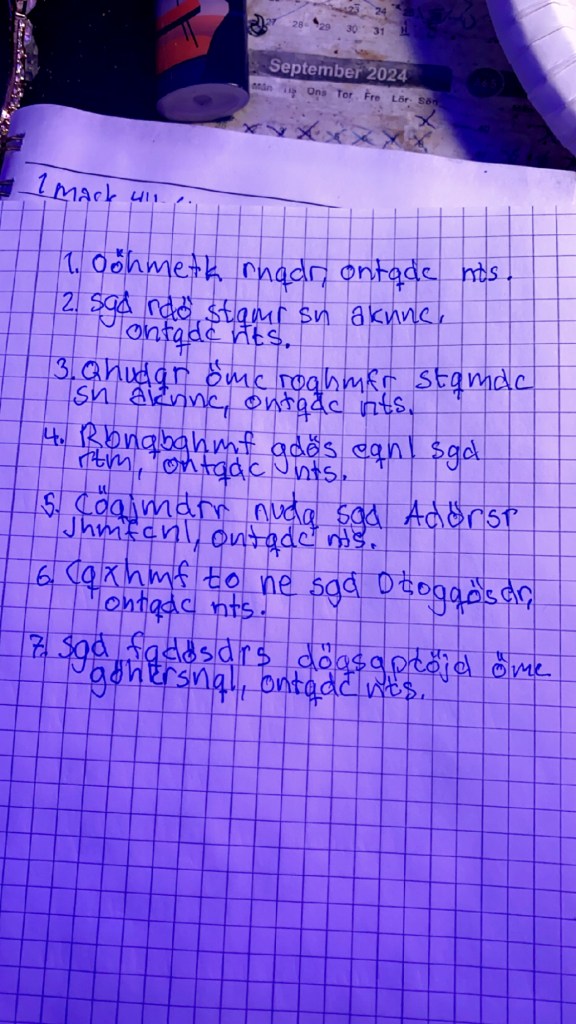 23 24
27 28 29 30 31
September 2024
Mån Ons Tor Fre Lör Sön
1. Oöhmetk rnqdr, ontqdc nts.
2. Sgd rdö stqmr sn aknnc,
ontqdc nts.
3. Qhudqr ömc roqhmfr stqmdc
sn aknnc, ontqdc nts.
4. Rbnqbghmf gdös eqnl sgd
rtm, ontqdc nts.
5. Cöqjmdrr nudq sgd Adörsr
jhmfcnl, ontqdc nts.
6. Cqxhmf to ne sgd Dtogqösdr,
ontqdc nts.
7. Sgd fqdösdrs döqsgptöjd ömc
göhkrsnql, ontqdc nts.